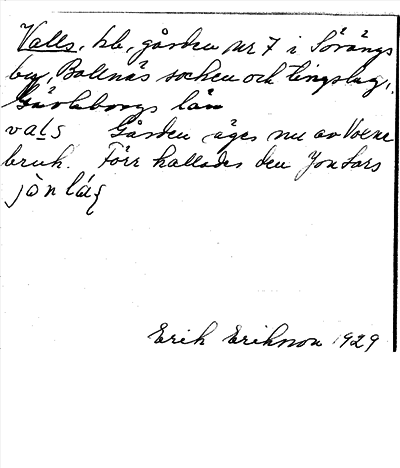 Valls, hb, gården nr 7 i Sörängs
by, Bollnäs socken och tingslag,
Gävleborgs län
vals Gården äges nu av Voxna
bruk. Förr kallades den Jon Lars
jòn láʂ
Erik Eriksson 1929